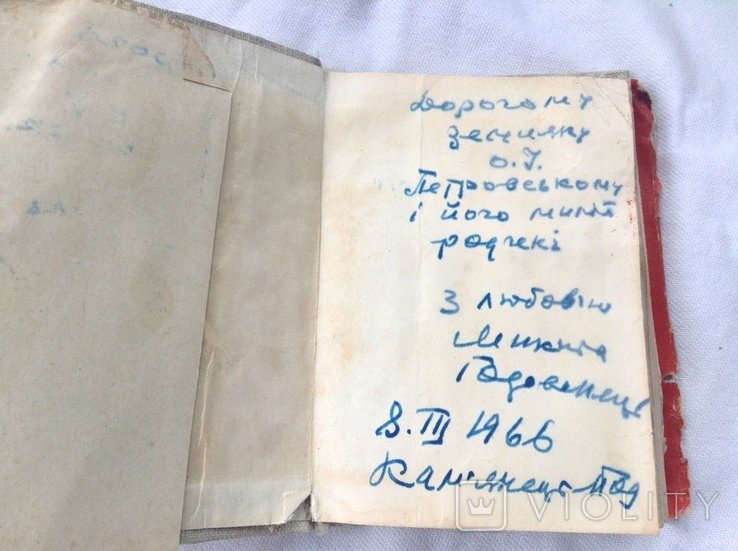 Дорогому
земляку
О. І.
Петровському
і його милій
родичкі
З любов'ю
Микита
Годованець
8. III 1966
Кам'янець Под
VIOLITY